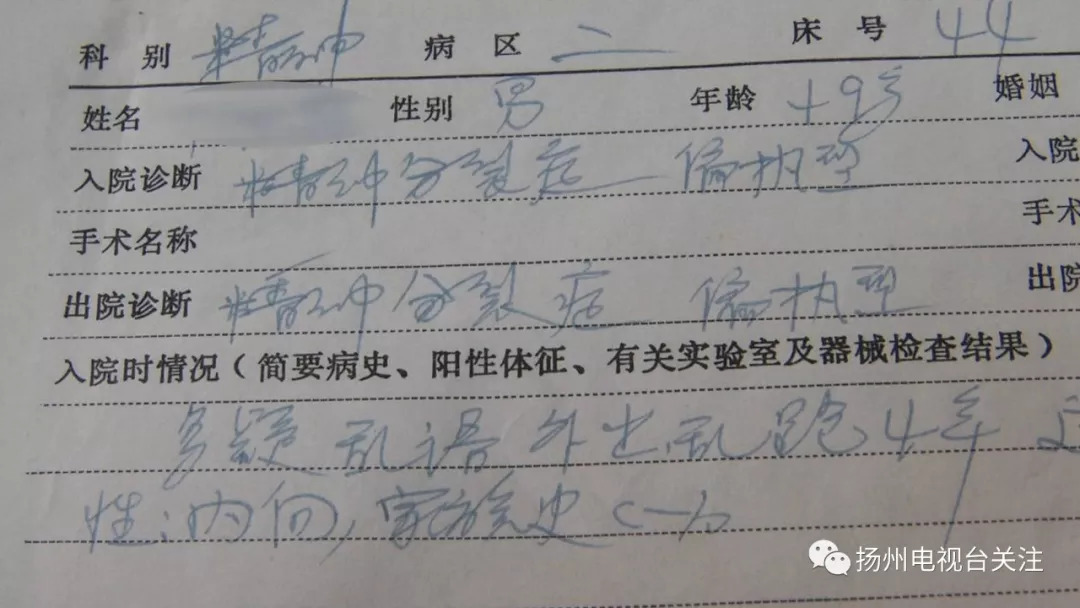 科别 精神 病区 二 床号 44
姓名 性别 男 年龄 49岁 婚姻
入院诊断 精神分裂症 偏执型 入院
手术名称 手术
出院诊断 精神分裂症 偏执型 出院
入院时情况（简要病史、阳性体征、有关实验室及器械检查结果）
多疑 乱语 外出乱跑4年
性：内向，家族史（—）。
扬州电视台关注